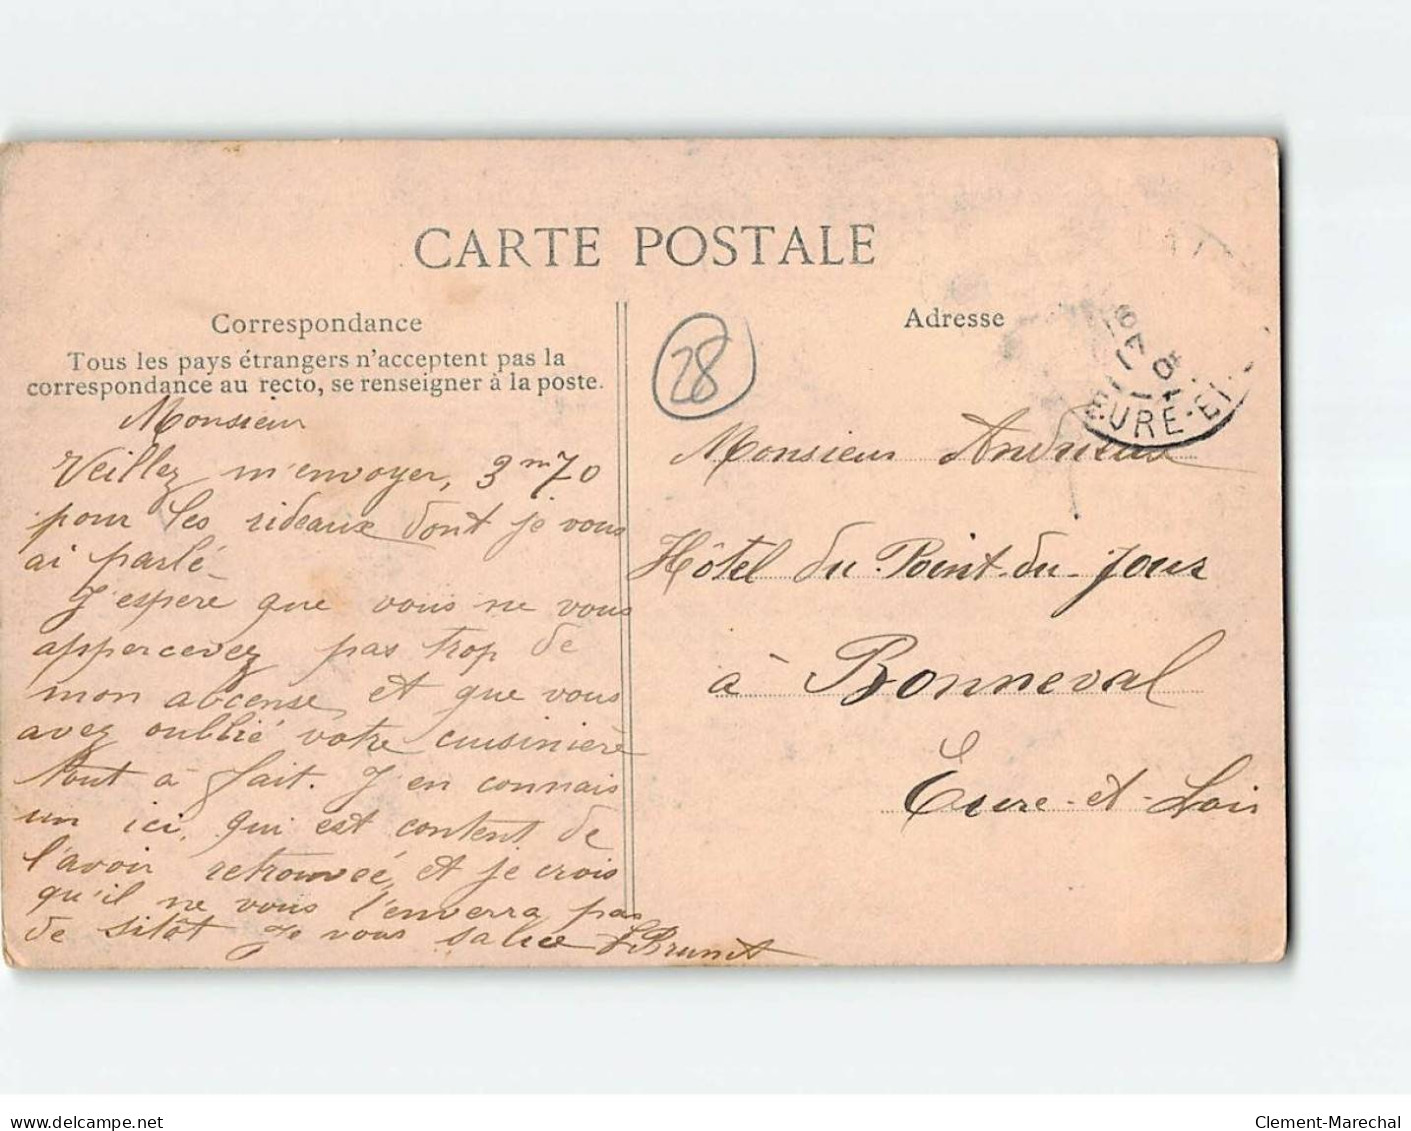 CARTE POSTALE
Correspondance
Tous les pays étrangers n'acceptent pas la
correspondance au recto, se renseigner à la poste.
Monsieur
Veillez m'envoyer, 3 m 70
pour les rideaux dont je vous
ai parlé
J'espère que vous ne vous
appercevez pas trop de
mon abcense, et que vous
avez oublié votre cuisinière
tout à fait. J'en connais
un ici, qui est content de
l'avoir retrouvéé, et je crois
qu'il ne vous l'enverra pas
de sitôt Je vous salue Brunet
28
Adresse
17
EURE-ET
Monsieur
Hôtel du Point-du-Jour
à Bonneval
Eure-et-Loir
www.delcampe.net
Clement-Marechal